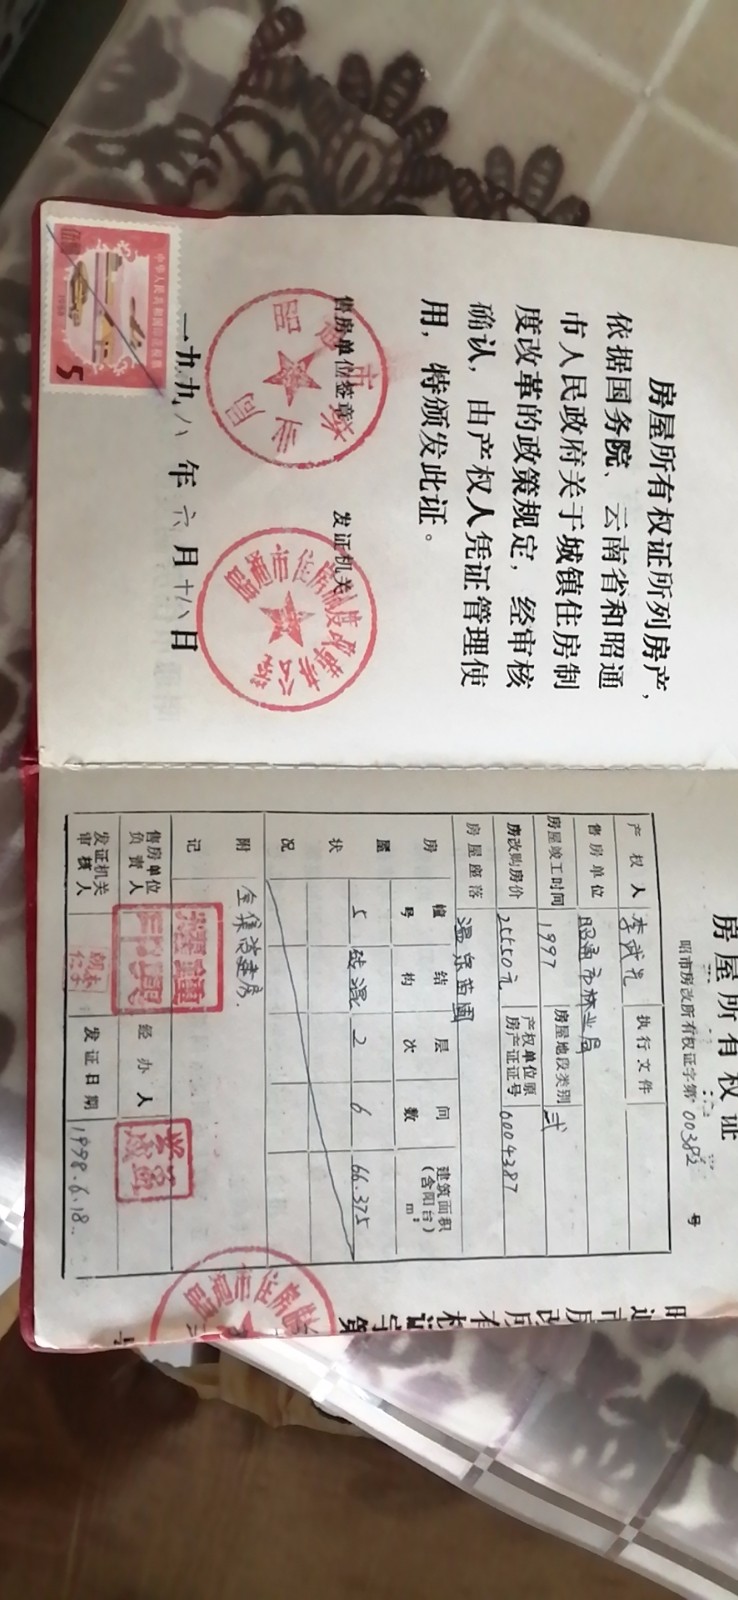 房屋所有权证所列房产，
依据国务院、云南省和昭通
市人民政府关于城镇住房制
度改革的政策规定，经审核
确认，由产权人凭证管理使
用，特颁发此证。
售房单位签章
发证机关
昭通市住房制度改革
一九九八年六月十八日
中华人民共和国印花税票
1988
5
房屋所有权证
昭市房改所有权证字第00382号
产权人 李武光 执行文件
售房单位 昭通市林业局
房屋竣工时间 1997 房屋地段类别 弍
房改购房价 25550元 产权单位原房产证证号 0004387
房屋座落 温泉苗圃
房屋状况
幢号 结构 层次 间数 建筑面积（含阳台）m²
5 砖混 2 6 66.375
附记 全集资建房.
售房单位负责人 经办人
发证机关审核人 发证日期 1998.6.18.
昭通市住房制